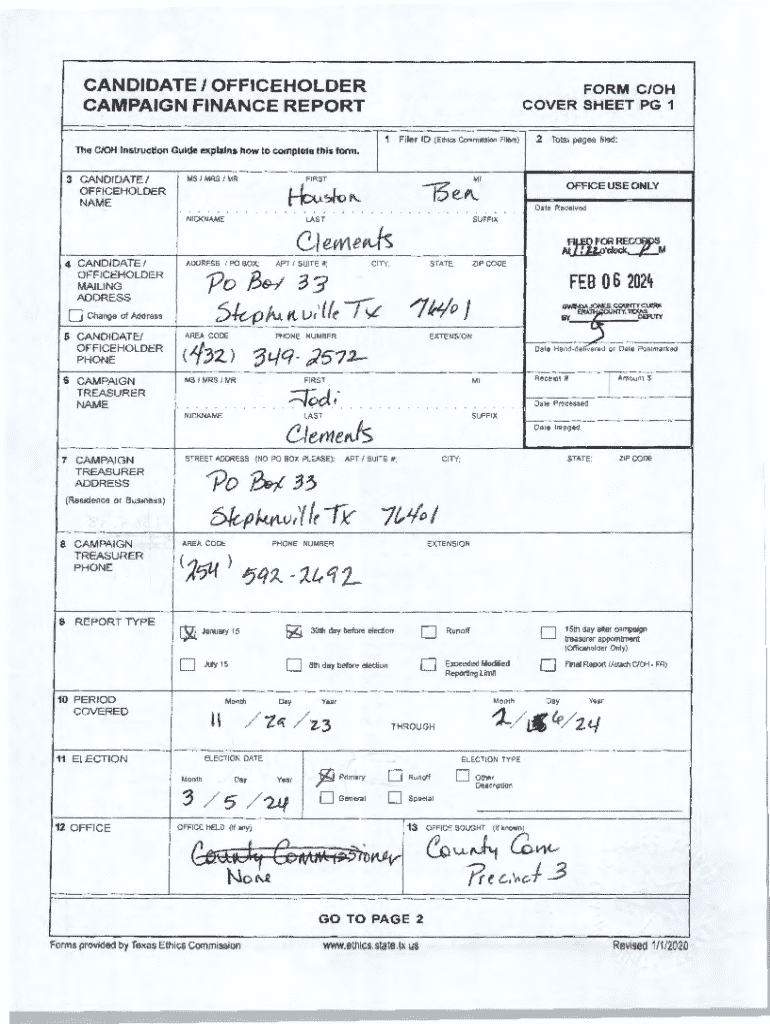 CANDIDATE / OFFICEHOLDER
CAMPAIGN FINANCE REPORT
FORM C/OH
COVER SHEET PG 1
The C/OH Instruction Guide explains how to complete this form.
1 Filer ID (Ethics Commission Filers)
2 Total pages filed:
3 CANDIDATE / OFFICEHOLDER NAME
MS / MRS / MR FIRST MI
Houston Ben
NICKNAME LAST SUFFIX
Clements
OFFICE USE ONLY
Date Received
FILED FOR RECORDS
At 1:22 o'clock, P M
FEB 06 2024
GWINDA JONES, COUNTY CLERK
ERATH COUNTY, TEXAS
BY DEPUTY
Date Hand-delivered or Date Postmarked
Receipt # Amount $
Date Processed
Date Imaged
4 CANDIDATE / OFFICEHOLDER MAILING ADDRESS
Change of Address
ADDRESS / PO BOX; APT / SUITE #; CITY; STATE; ZIP CODE
PO Box 33
Stephenville Tx 76401
5 CANDIDATE/ OFFICEHOLDER PHONE
AREA CODE PHONE NUMBER EXTENSION
(432) 349-2572
6 CAMPAIGN TREASURER NAME
MS / MRS / MR FIRST MI
Jodi
NICKNAME LAST SUFFIX
Clements
7 CAMPAIGN TREASURER ADDRESS
(Residence or Business)
STREET ADDRESS (NO PO BOX PLEASE); APT / SUITE #; CITY; STATE; ZIP CODE
PO Box 33
Stephenville Tx 76401
8 CAMPAIGN TREASURER PHONE
AREA CODE PHONE NUMBER EXTENSION
(254) 592-2692
9 REPORT TYPE
January 15 30th day before election Runoff 15th day after campaign treasurer appointment (Officeholder Only)
July 15 8th day before election Exceeded Modified Reporting Limit Final Report (Attach C/OH - FR)
10 PERIOD COVERED
Month Day Year Month Day Year
11 / 29 / 23 THROUGH 2 / 6 / 24
11 ELECTION
ELECTION DATE ELECTION TYPE
Month Day Year Primary Runoff Other Description
3 / 5 / 24 General Special
12 OFFICE
OFFICE HELD (if any)
County Commissioner
None
13 OFFICE SOUGHT (if known)
County Com
Precinct 3
GO TO PAGE 2
Forms provided by Texas Ethics Commission www.ethics.state.tx.us Revised 1/1/2020